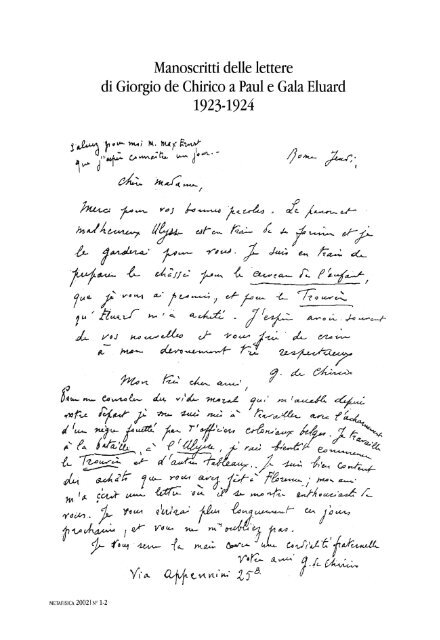 Manoscritti delle lettere
di Giorgio de Chirico a Paul e Gala Eluard
1923-1924
Saluez pour moi M. Max Ernst
que j'espère connaître un jour..
Rome Jeudi,
Chère madame,
Merci pour vos bonnes paroles. Le pauvre et
malheureux Ulysse est en train de se finir et je
le garderai pour vous. Je suis en train de
préparer le châssis pour le cerveau de l'enfant,
que je vous ai promis, et pour le Trouvère
qu'Eluard m'a acheté. J'espère avoir souvent
de vos nouvelles et vous prie de croire
à mon dévouement très respectueux
G. de Chirico
Mon très cher ami,
Pour me consoler du vide moral qui m'accable depuis
votre départ je me suis mis à travailler avec l'acharnement
d'un nègre fouetté par 7 officiers coloniaux belges. Je travaille
à la bataille, à l'Ulysse, je vais bientôt commencer
le Trouvère et d'autres tableaux.. Je suis bien content
des achats que vous avez fait à Florence; mon ami
m'a écrit une lettre où il se montre enthousiaste de
vous. Je vous écrirai plus longuement ces jours
prochains, et vous ne m'oubliez pas.
Je vous serre la main avec une cordialité fraternelle
votre ami G. de Chirico
Via Appennini 25B
METAFISICA 2002| N° 1-2